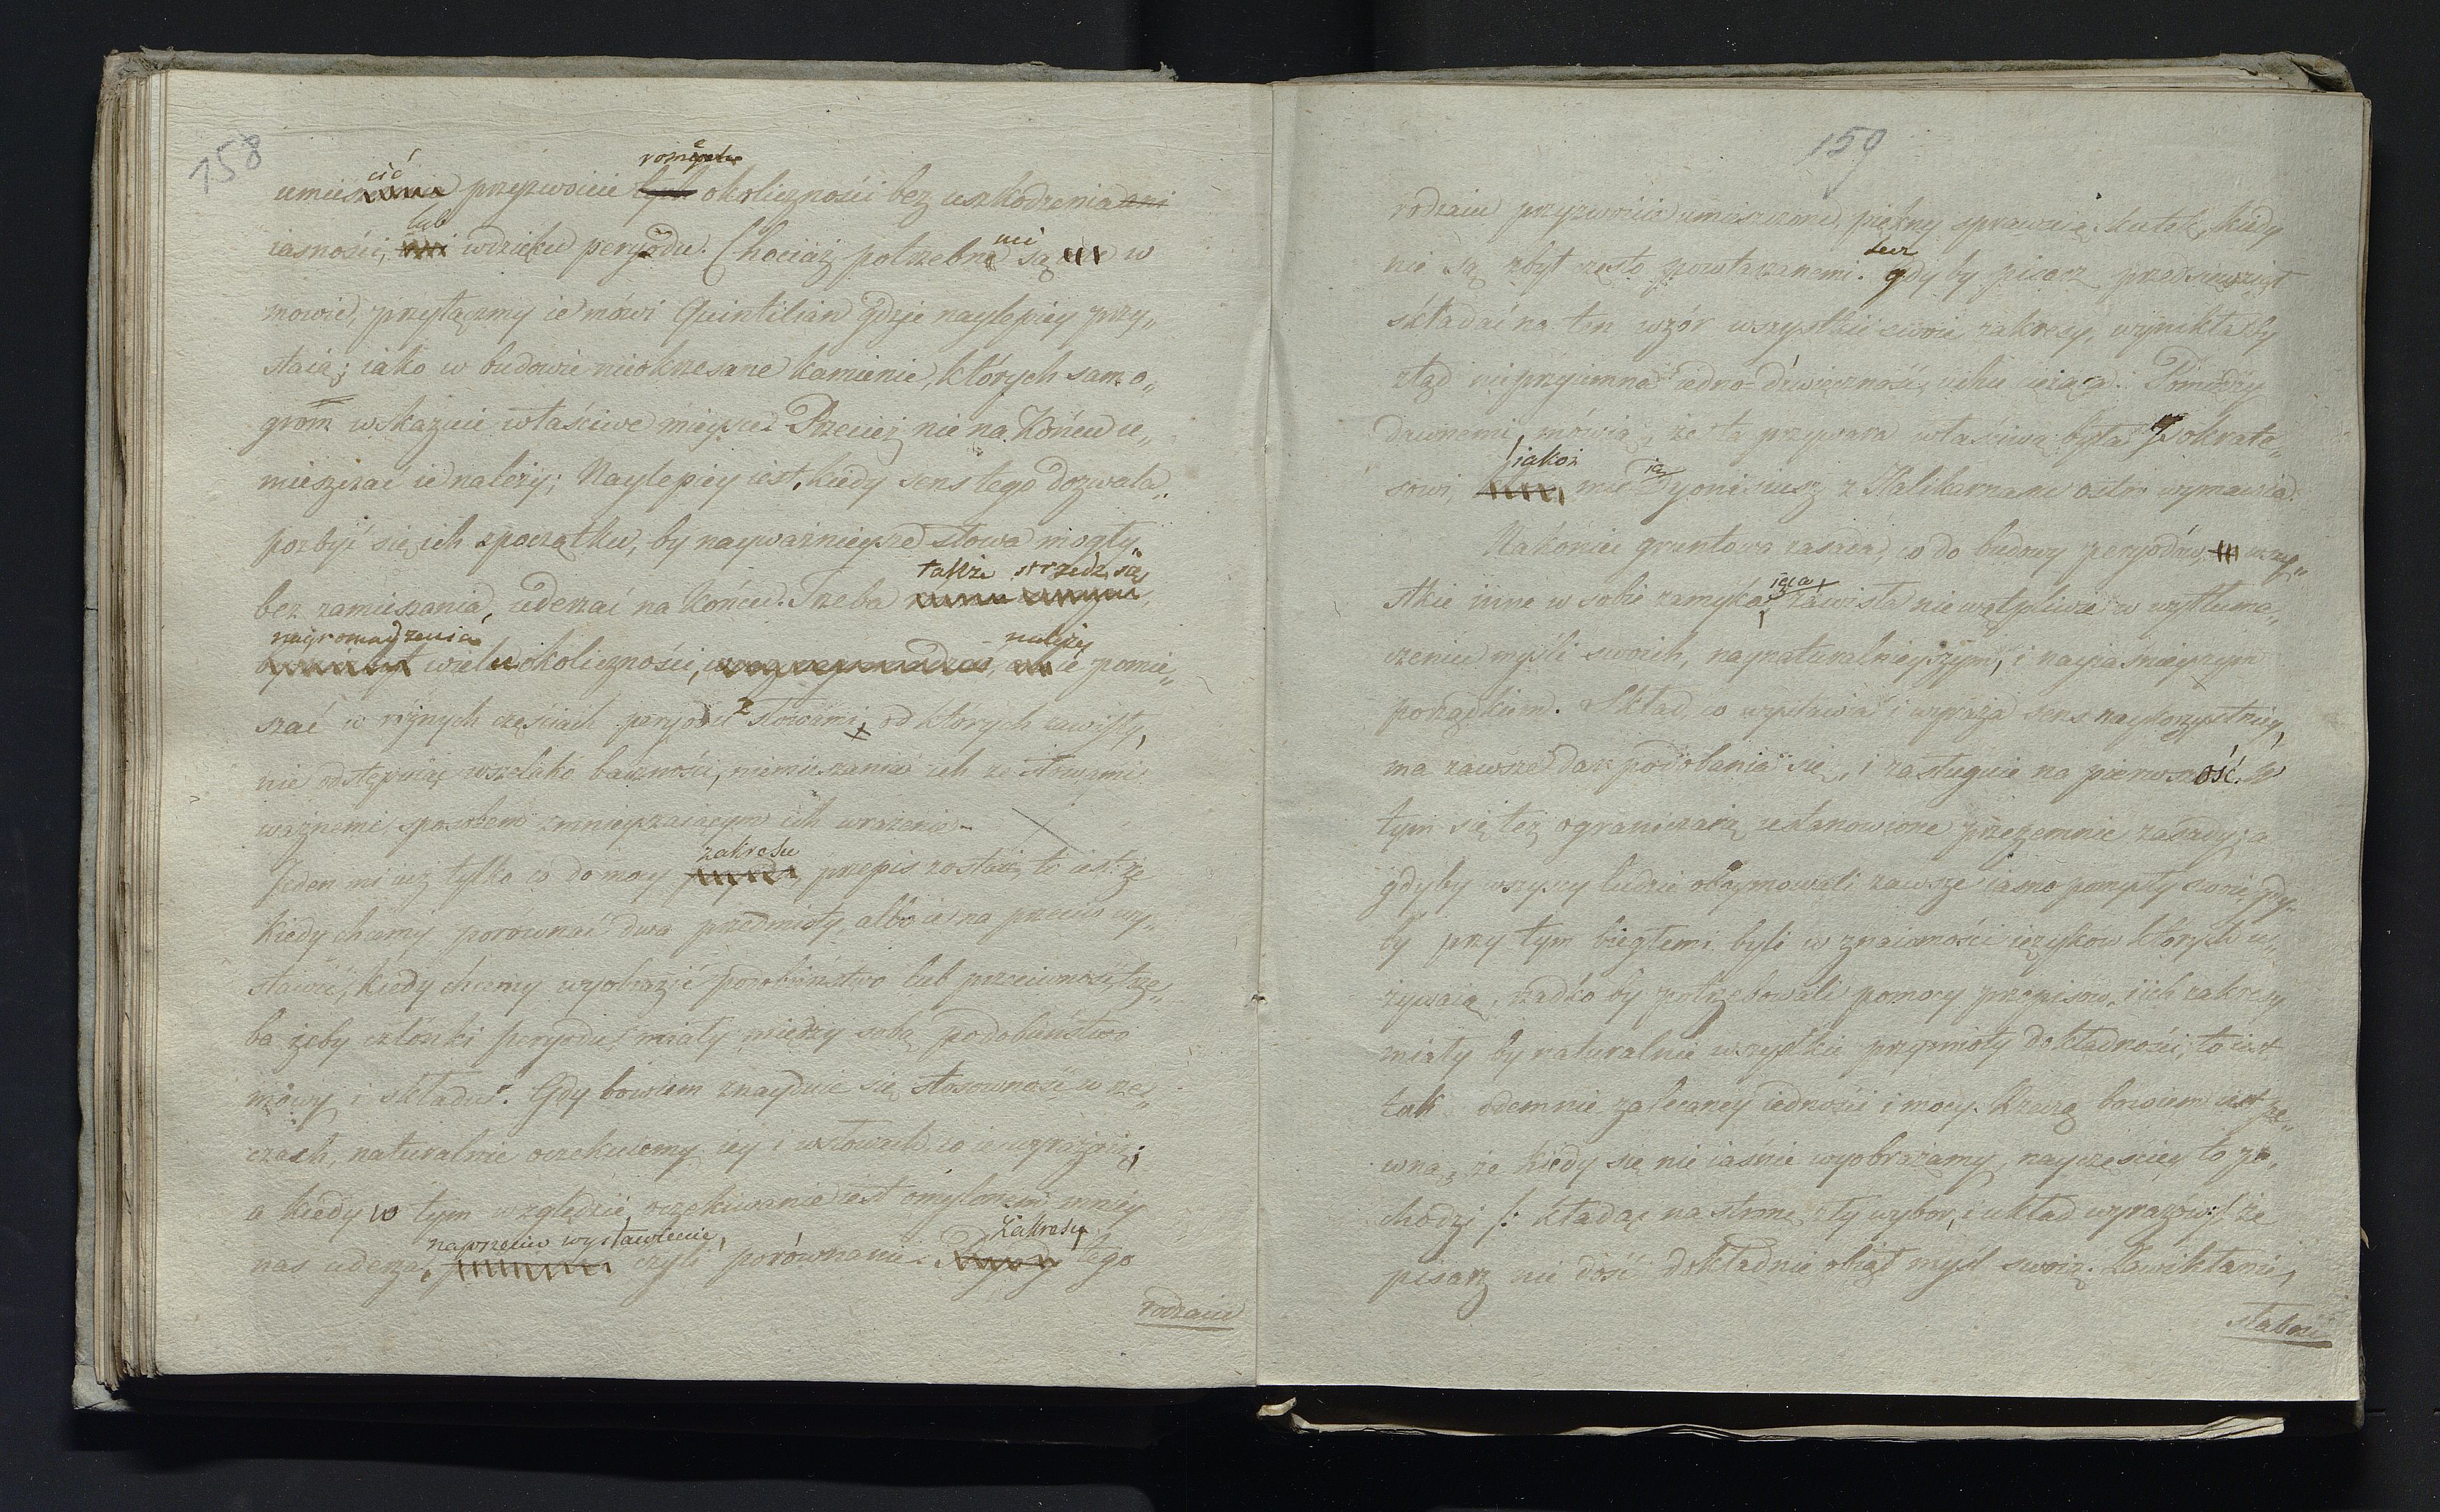 158
umieścić przyzwoicie okoliczności bez uszkodzenia
iasności, lub wdzięku peryodu. Chociaż potrzebne są w
mowie, przyłączmy ie mówi Quintilian gdzie naylepiey przy„
staią; iako w budowie nieokrzesane kamienie, których sam o„
grom wskazuie właściwe mieysce. Przecież nie na końcu u„
mieszczać ie należy; Naylepiey iest, kiedy sens tego dozwala„
pozbyć się ich zpoczątku, by nayważnieysze słowa mogły
bez zamieszania, uderzać na końcu. Trzeba także strzedz się
nagromadzenia wielu okoliczności, należy ie pomie„
szać w różnych częściach peryodu z słowami, od których zawisły,
nie odstępuiąc wszelako baczności, niemieszania ich ze słowami
ważnemi, sposobem zmnieyszaiącym ich wrażenie -
Jeden mi iuż tylko co do mocy zakresu przepis zostaie, to iest: że
kiedy chcemy porównać dwa przedmioty, albo ie na przeciw wy„
stawić, kiedy chcemy wyobrazić podobieństwo lub przeciwność, trze„
ba żeby członki peryodu miały między sobą podobieństwo
mowy i składu. Gdy bowiem znayduie się stosowność w rze„
czach, naturalnie oczekuiemy iey i w słowach, co ie wyrażaią;
a kiedy w tym względzie, oczekiwanie iest omylonem, mniey
nas uderza, naprzeciw wystawienie, czyli porównanie. Zakresy tego
rodzaiu
159
rodzaiu przyzwoicie umieszczone, piękny sprawuią skutek, kiedy
nie są zbyt często powtarzanemi. lecz gdy by pisarz przedsięwziął
składać na ten wzór wszystkie swoie zakresy, wynikłaby
ztąd nieprzyiemna iedno-dźwięczność, uchu ciążąca. Pomiędzy
dawnemi, mówią, że ta przywara właściwą była Izokrate„
sowi, iakoż mu ią Dyonizyusz z Halikarnanu ostro wymawia.
Nakoniec gruntowa zasada, co do budowy peryodów, wszy„
stkie inne w sobie zamykaiąca, zawisła niewątpliwie w wytłuma„
czeniu myśli swoich, naynaturalnieyszym, i nayiaśnieyszym
porządkiem. Skład, co wystawia i wyraża sens naykorzystniey,
ma zawsze dar podobania się, i zasługuie na pierwszość. W
tym się też ograniczaią ustanowione przezemnie zasady; a
gdyby wszyscy ludzie obeymowali zawsze iasno pomysły swoie, gdy„
by przy tym biegłemi byli w znaiomości ięzyków których u„
żywaią, rzadko by potrzebowali pomocy przepisów, i ich zakresy
miały by naturalnie wszystkie przymioty dokładności, to iest
tak odemnie zalecaney iedności i mocy. Rzeczą bowiem iest pe„
wną, że kiedy się nie iaśnie wyobrażamy, nayczęściey to po„
chodzi /: kładąc na stronę zły wybor, i układ wyrazów :/ że
pisarz nie dość dokładnie obiął myśl swoią. Zawikłanie,
słabość